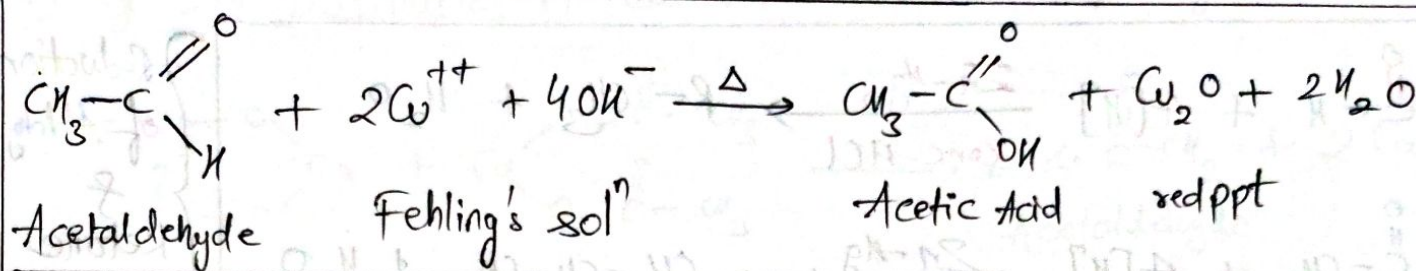 CH₃-C(=O)-H + 2Cu⁺⁺ + 4OH⁻ —Δ→ CH₃-C(=O)-OH + Cu₂O + 2H₂O
Acetaldehyde Fehling's solⁿ Acetic Acid red ppt